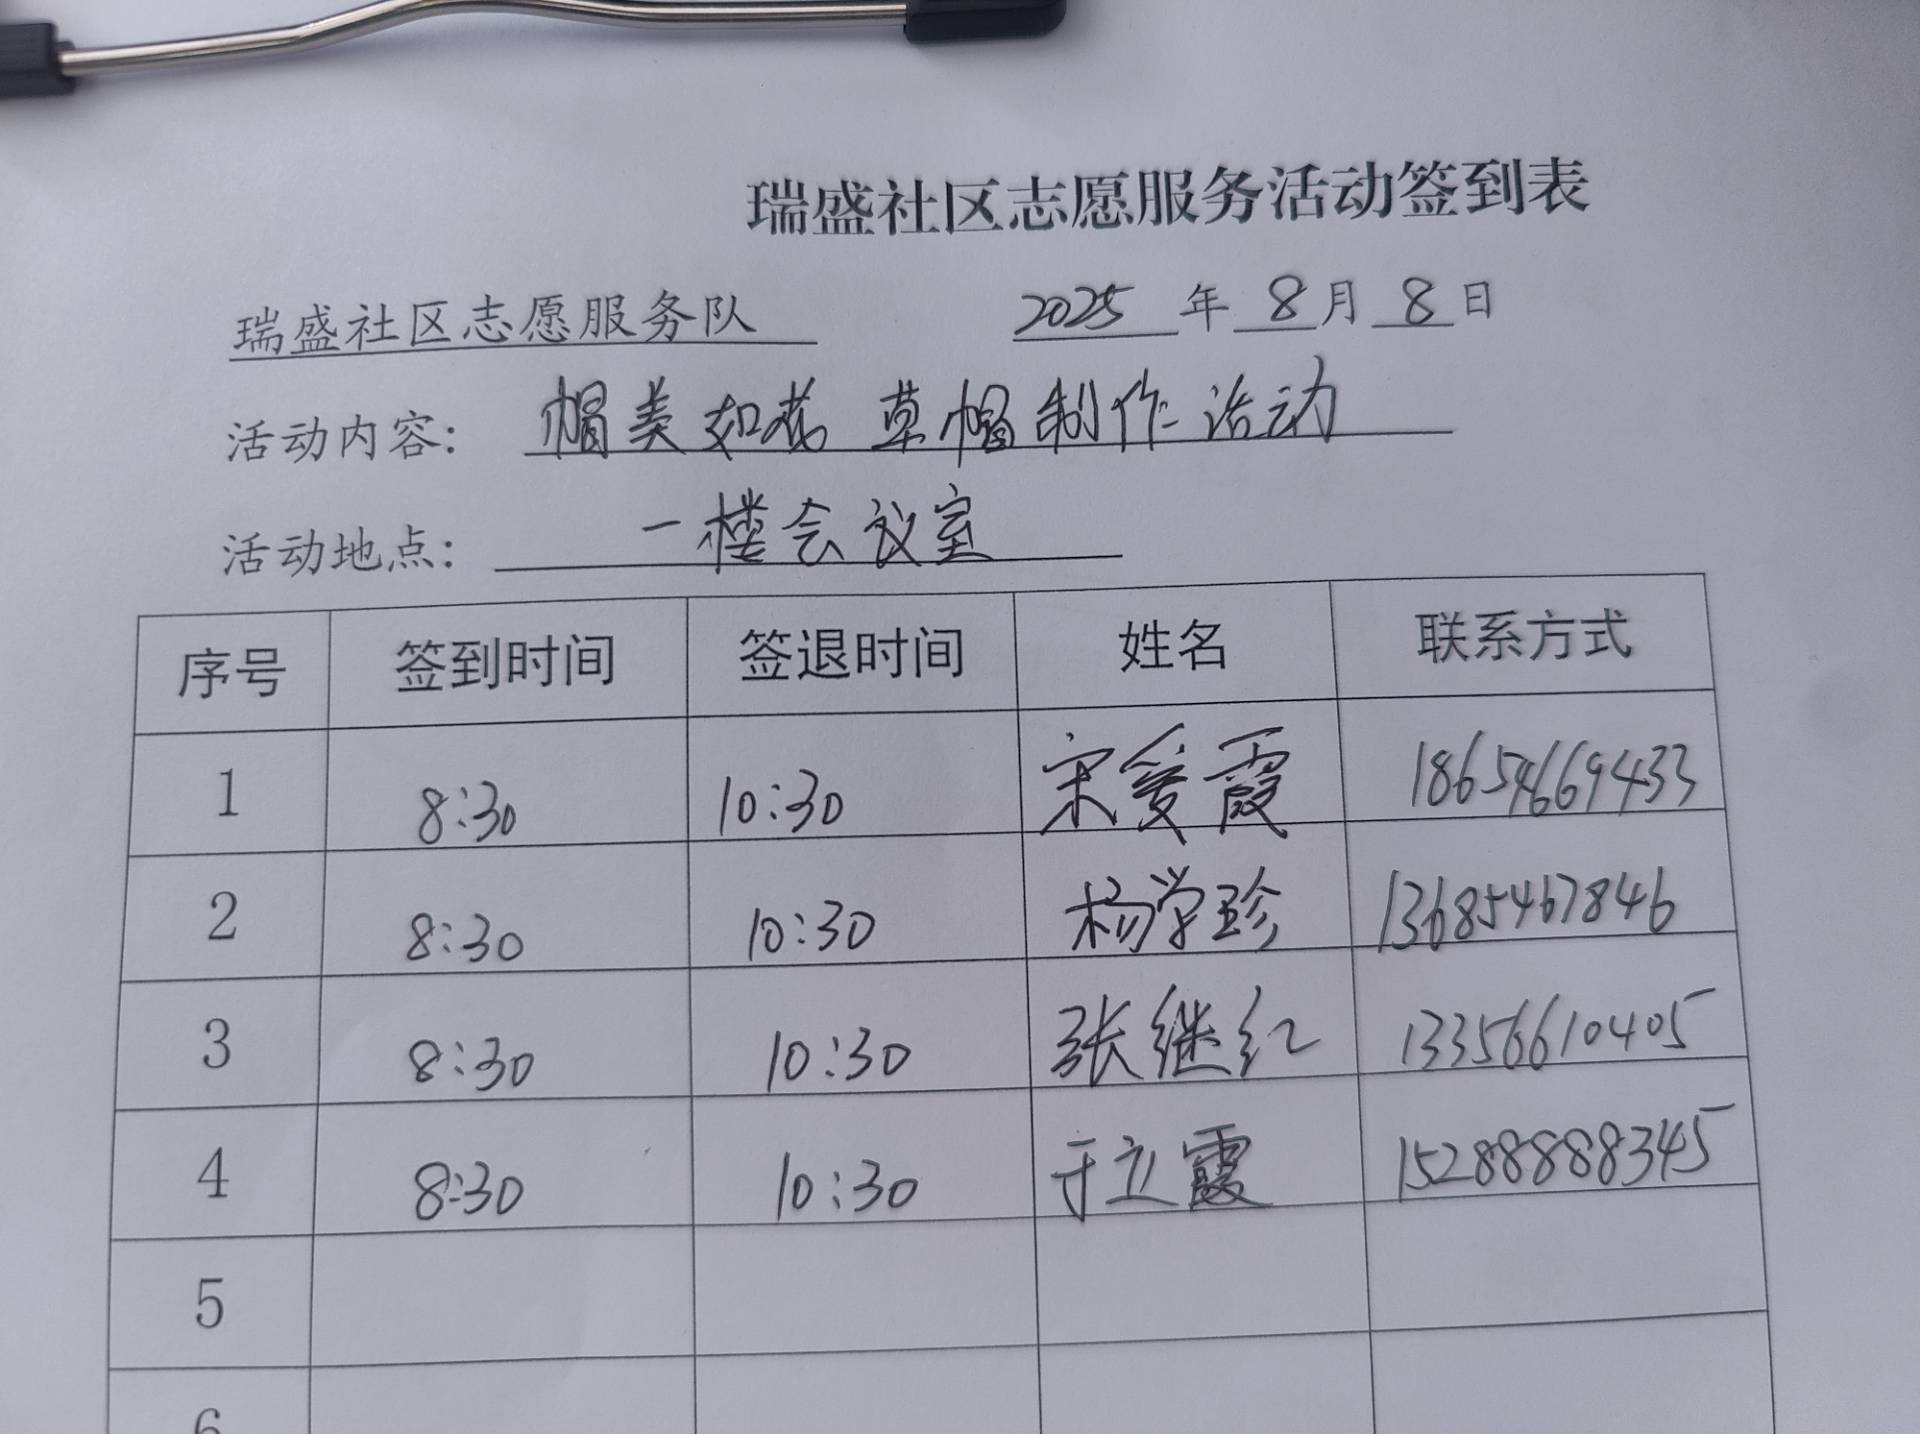 瑞盛社区志愿服务活动签到表
瑞盛社区志愿服务队 2025 年 8 月 8 日
活动内容： 帽美如花 草帽制作活动
活动地点： 一楼会议室
序号 签到时间 签退时间 姓名 联系方式
1 8:30 10:30 宋爱霞 18654669433
2 8:30 10:30 杨学珍 13685467846
3 8:30 10:30 张继红 13356610405
4 8:30 10:30 于立霞 15288888345
5
6